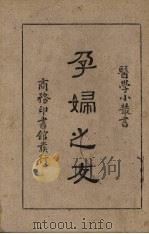 醫學小叢書
孕婦之友
商務印書館發行
mtoou.info yndoo.com